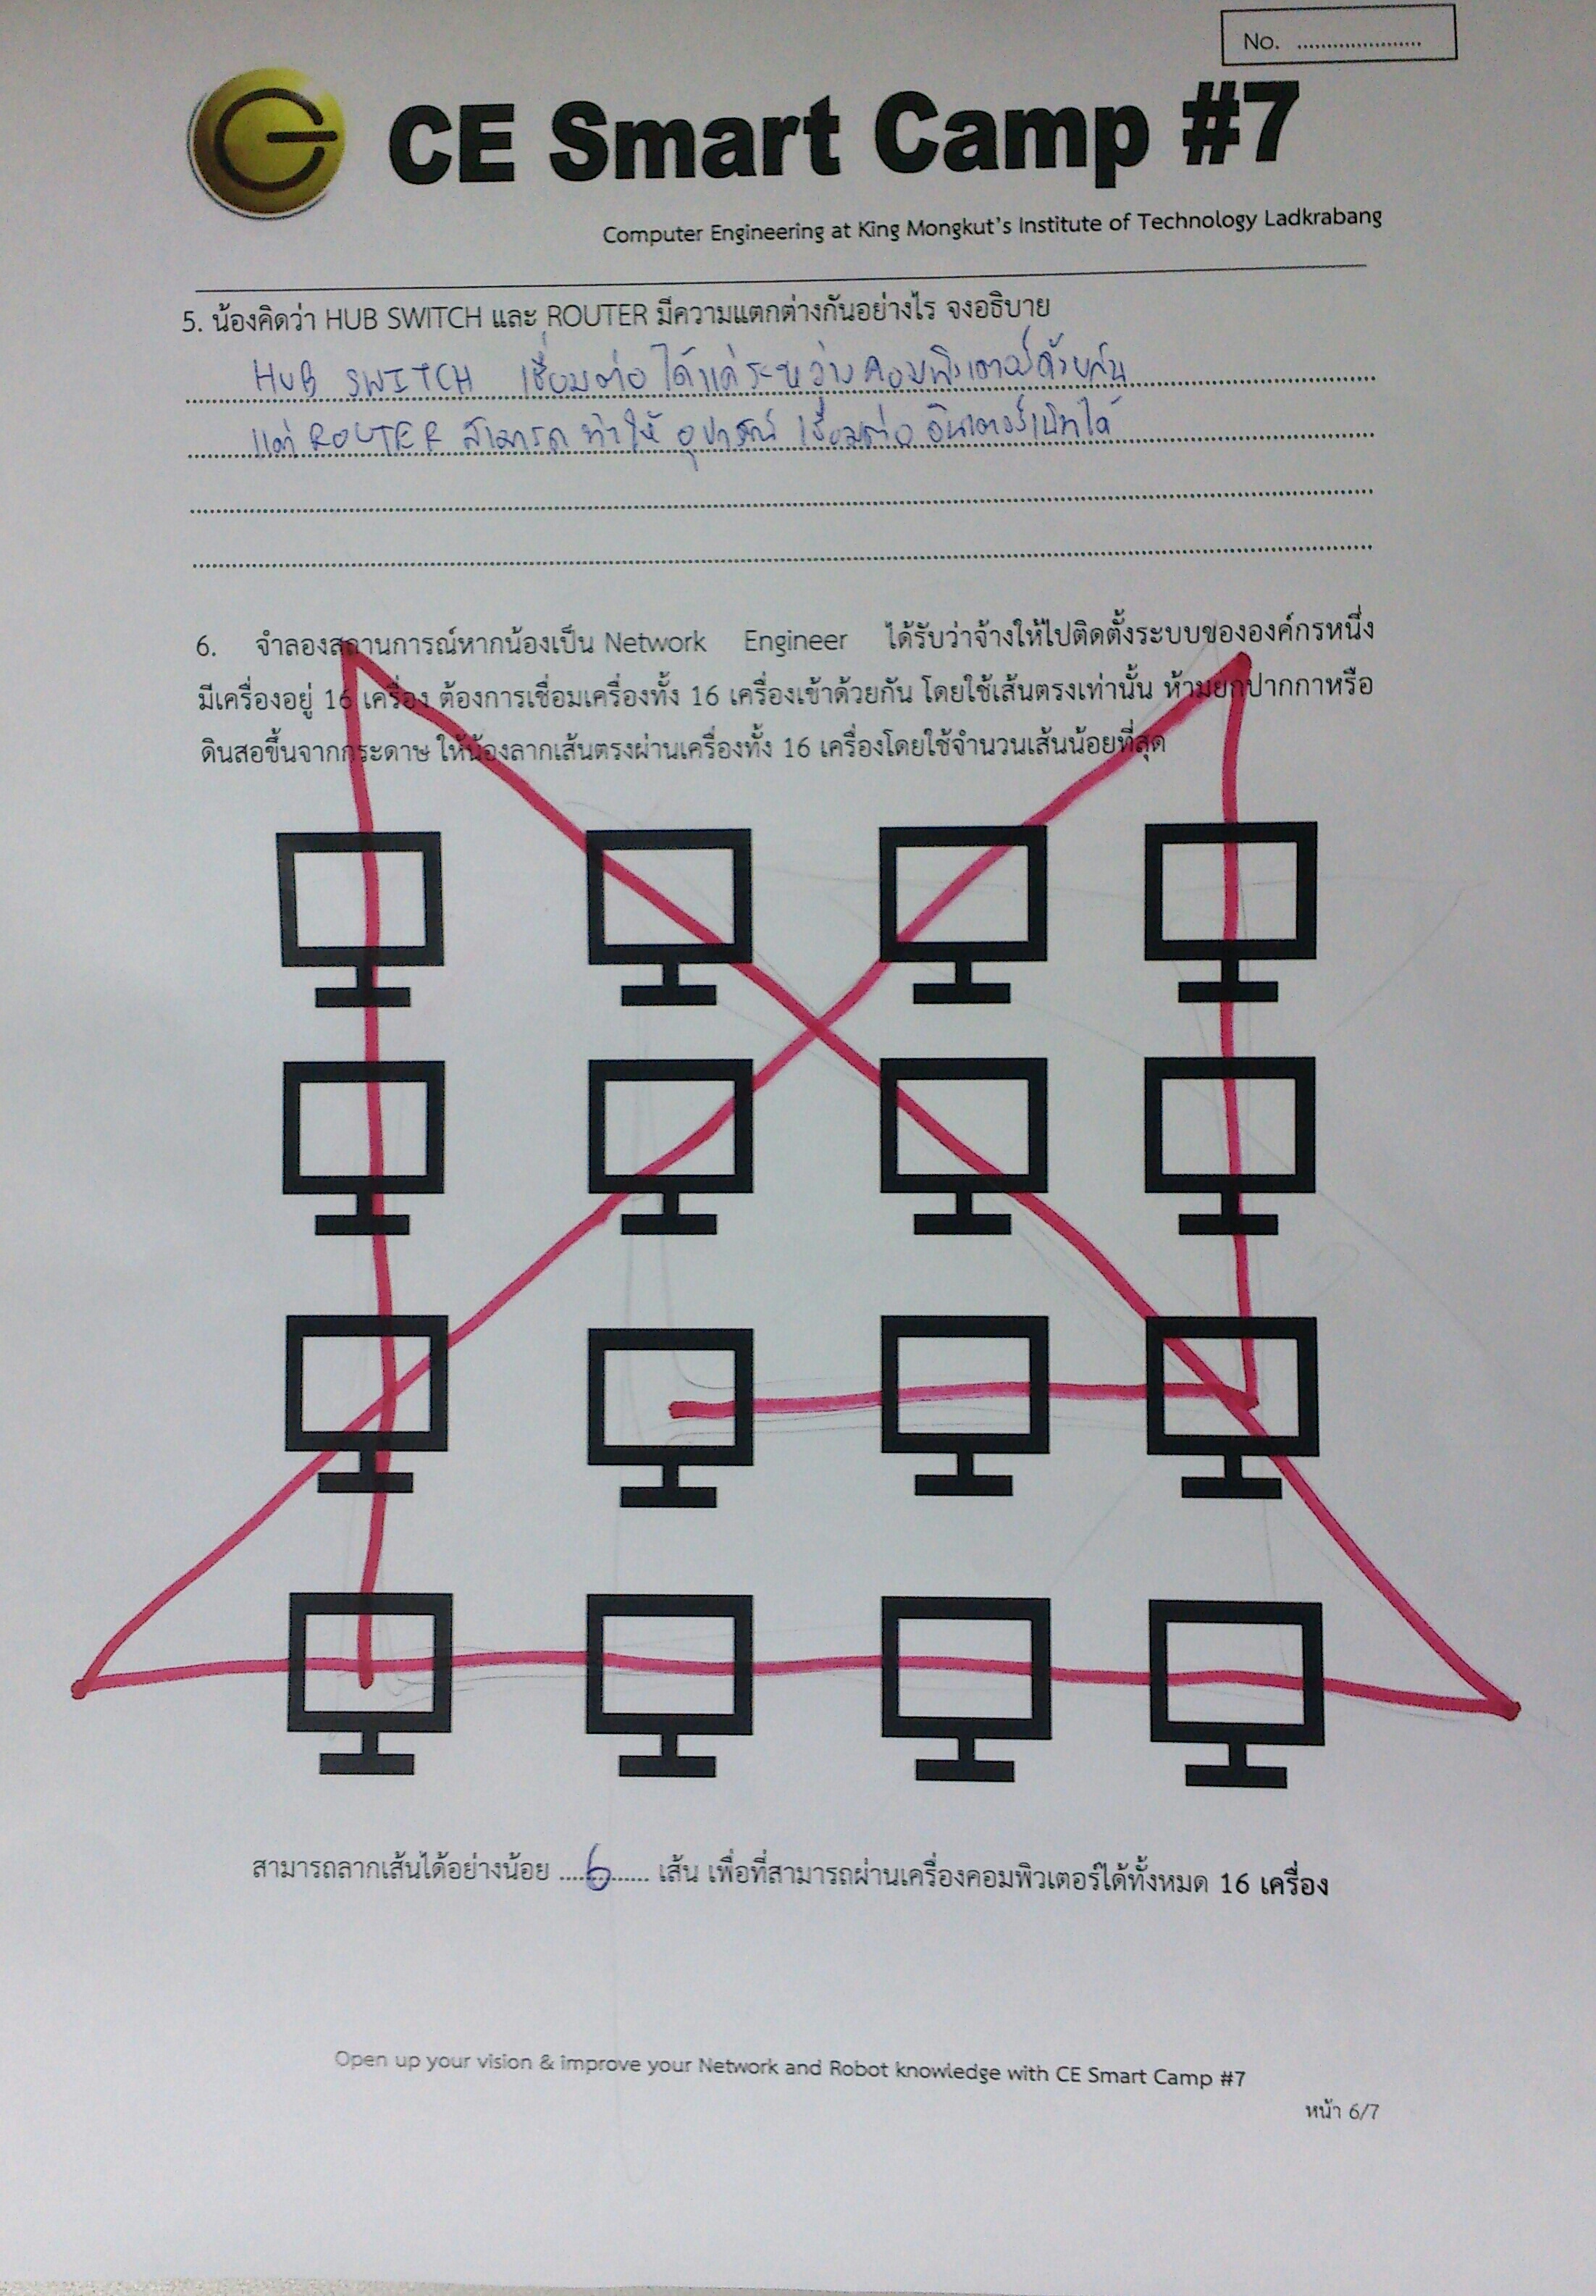 No. ......................
CE Smart Camp #7
Computer Engineering at King Mongkut's Institute of Technology Ladkrabang
5. น้องคิดว่า HUB SWITCH และ ROUTER มีความแตกต่างกันอย่างไร จงอธิบาย
HUB SWITCH เชื่อมต่อ ได้แค่ระหว่าง คอมพิวเตอร์ด้วยกัน
แต่ ROUTER สามารถ ทำให้ อุปกรณ์ เชื่อมต่อ อินเตอร์เน็ทได้
6. จำลองสถานการณ์หากน้องเป็น Network Engineer ได้รับว่าจ้างให้ไปติดตั้งระบบขององค์กรหนึ่ง
มีเครื่องอยู่ 16 เครื่อง ต้องการเชื่อมเครื่องทั้ง 16 เครื่องเข้าด้วยกัน โดยใช้เส้นตรงเท่านั้น ห้ามยกปากกาหรือ
ดินสอขึ้นจากกระดาษ ให้น้องลากเส้นตรงผ่านเครื่องทั้ง 16 เครื่องโดยใช้จำนวนเส้นน้อยที่สุด
สามารถลากเส้นได้อย่างน้อย .....6....... เส้น เพื่อที่สามารถผ่านเครื่องคอมพิวเตอร์ได้ทั้งหมด 16 เครื่อง
Open up your vision & improve your Network and Robot knowledge with CE Smart Camp #7
หน้า 6/7